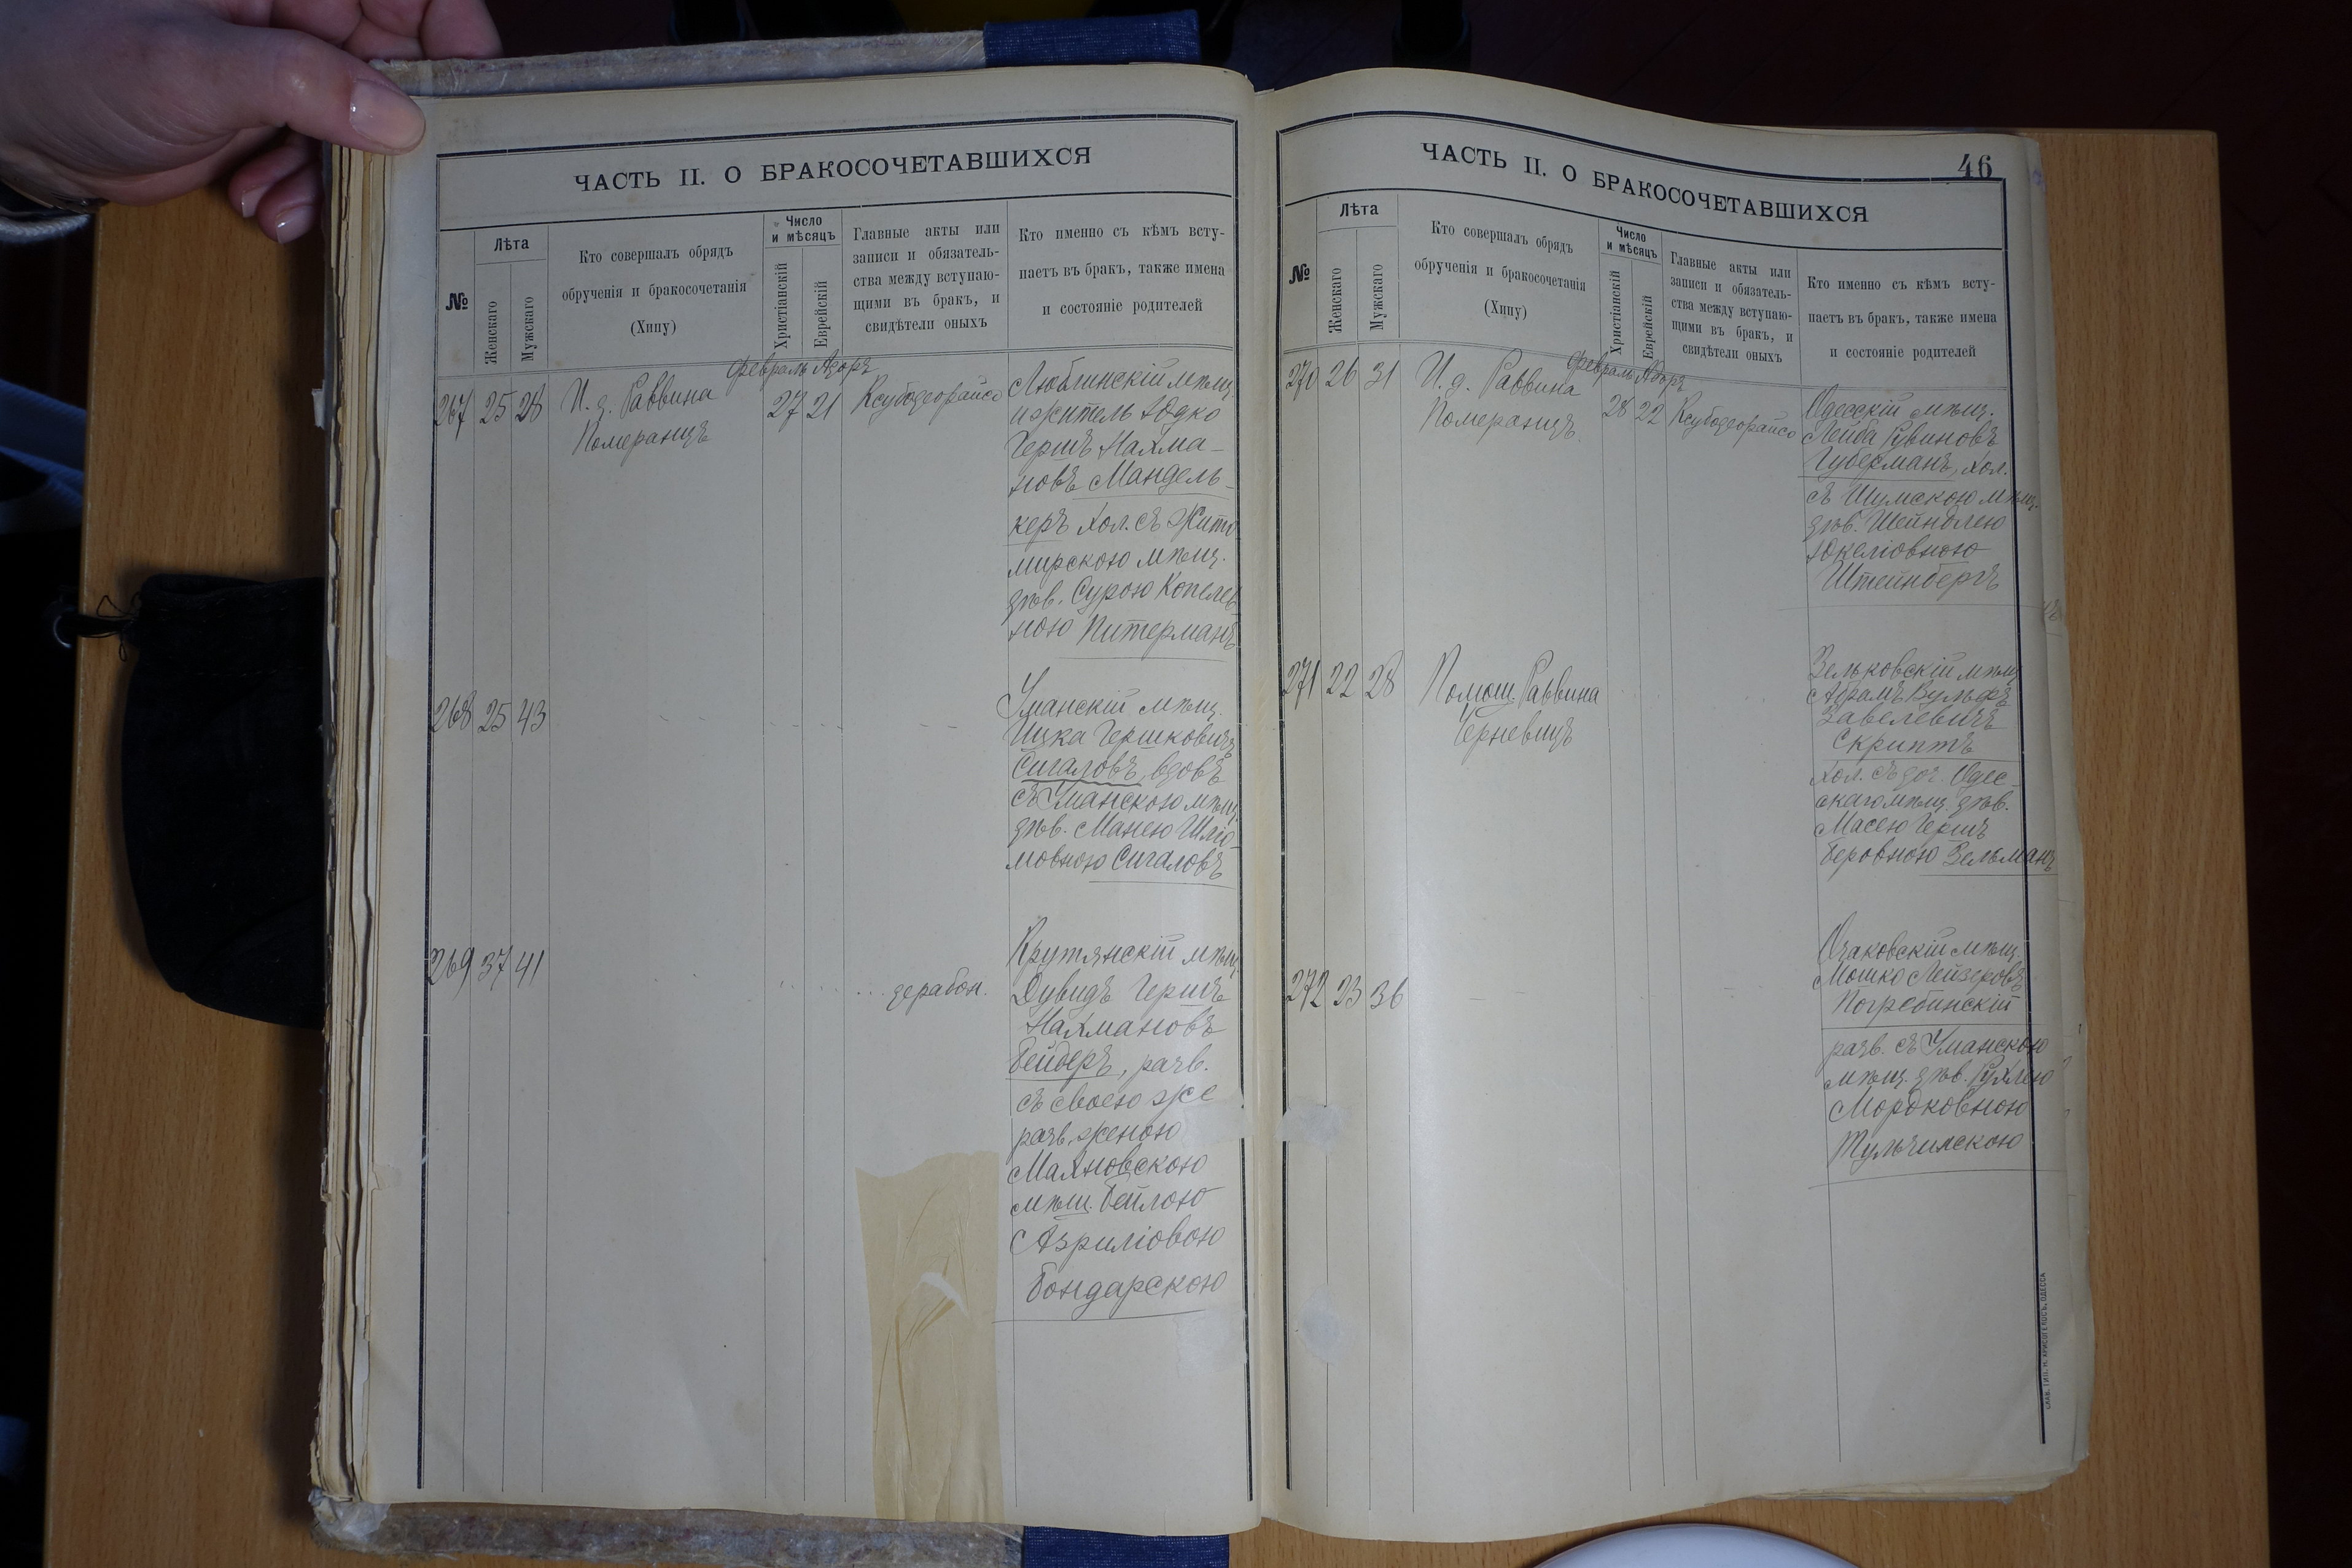 ЧАСТЬ II. О БРАКОСОЧЕТАВШИХСЯ
№
Лѣта
Женскаго
Мужскаго
Кто совершалъ обрядъ
обрученія и бракосочетанія
(Хипу)
Число
и мѣсяцъ
Христіанскій
Еврейскій
Главные акты или
записи и обязатель-
ства между вступаю-
щими въ бракъ, и
свидѣтели оныхъ
Кто именно съ кѣмъ всту-
паетъ въ бракъ, также имена
и состояніе родителей
Февраль Адоръ
267 25 28 И. д. Раввина 27 21 Ксубодеорайсо
Померанцъ
Люблинскій мѣщ.
и житель Юдко
Гершъ Нахма-
новъ Мандель-
керъ хол. съ Жито
мирскою мѣщ.
дѣв. Сурою Копелев
ною Питерманъ
268 25 43
Уманскій мѣщ.
Ицка Гершковичъ
Сигаловъ, вдовъ
съ Уманскою мѣщ.
дѣв. Манею Шлио-
мовною Сигаловъ
269 37 41 дерабон.
Крутянскій мѣщ.
Дувидъ Гершъ
Нахмановъ
Бейдеръ, разв.
съ своею же
разв. женою
Маяновскою
мѣщ. Бейлою
Азриліовою
Бондарскою
46
ЧАСТЬ II. О БРАКОСОЧЕТАВШИХСЯ
№
Лѣта
Женскаго
Мужскаго
Кто совершалъ обрядъ
обрученія и бракосочетанія
(Хипу)
Число
и мѣсяцъ
Христіанскій
Еврейскій
Главные акты или
записи и обязатель-
ства между вступаю-
щими въ бракъ, и
свидѣтели оныхъ
Кто именно съ кѣмъ всту-
паетъ въ бракъ, также имена
и состояніе родителей
Февраль Адоръ
270 26 31 И. д. Раввина 28 22 Ксубодеорайсо
Померанцъ
Одесскій мѣщ.
Лейба Рувиновъ
Губерманъ, хол.
съ Шумскою мѣщ.
дѣв. Шейндлею
Юкеліовною
Штейнбергъ
271 22 28 Помощ. Раввина
Черневицъ
Зельковскій мѣщ
Абрамъ Вульфъ
Завелевичъ
Скриптъ
хол. съ доч. Одес-
скаго мѣщ. дѣв.
Масею Гершъ
Беровною Зельманъ
272 23 36
Очаковскій мѣщ.
Мошко Лейзеровъ
Погребинскій
разв. съ Уманскою
мѣщ. дѣв. Рухлею
Мордковною
Тульчинскою
СКЛ. ТИП. Н. ХРИСОГЕЛОСЪ, ОДЕССА